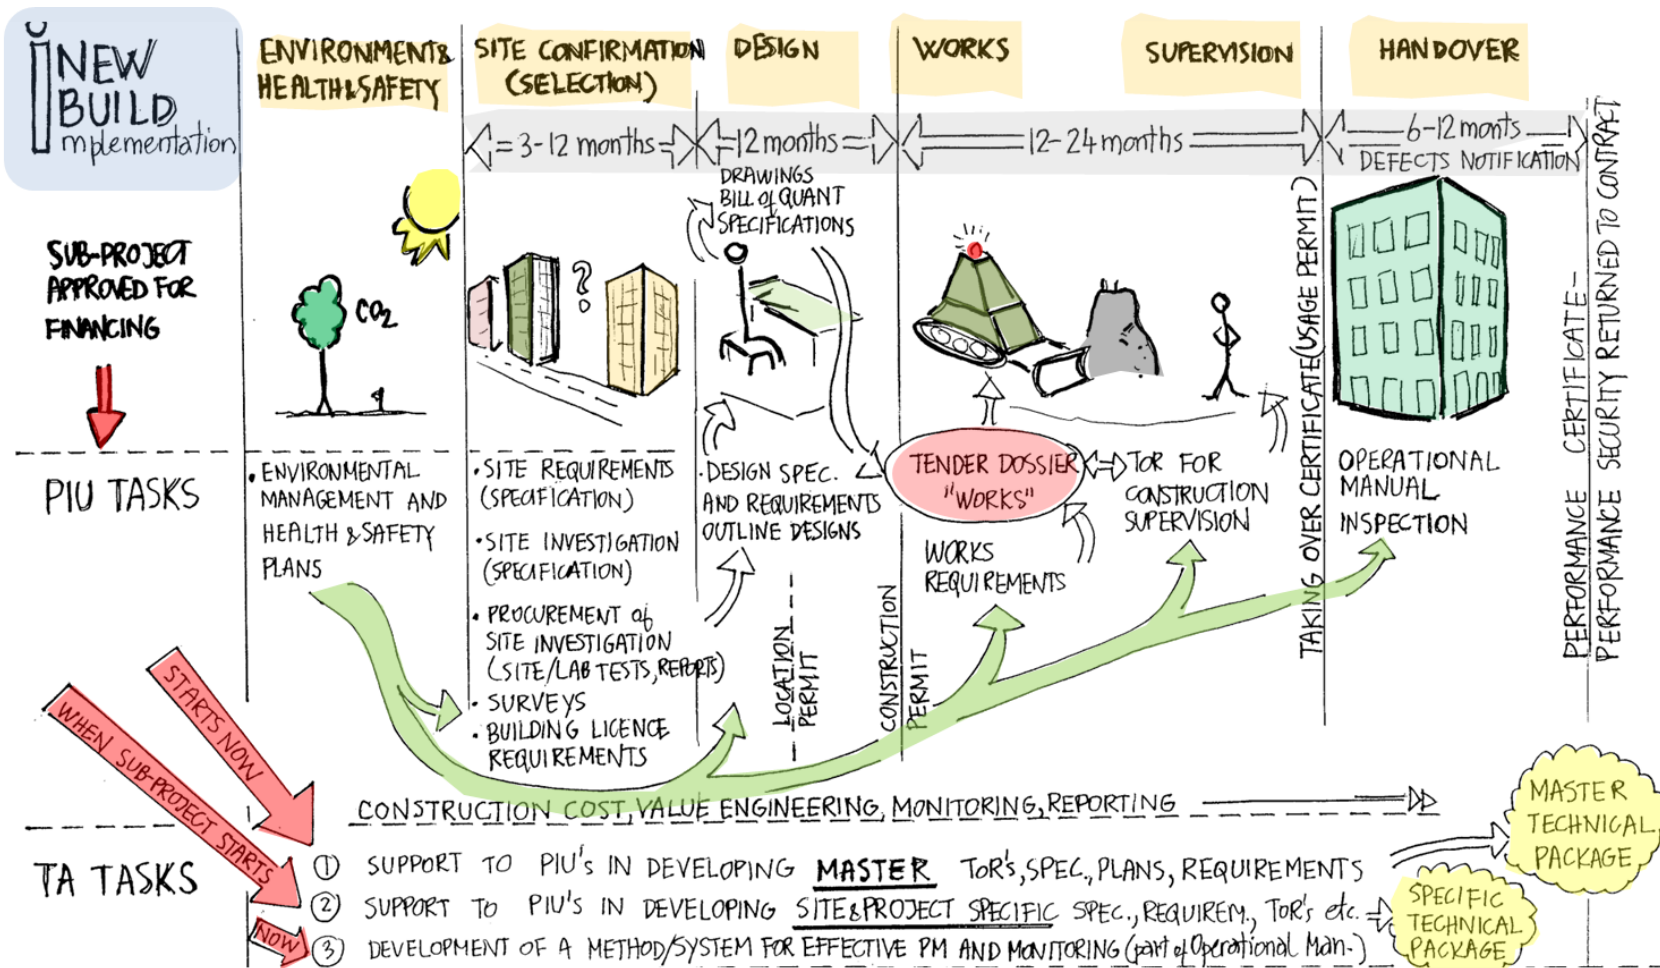 NEW
BUILD
implementation
ENVIRONMENT&
HEALTH&SAFETY
SITE CONFIRMATION
(SELECTION)
DESIGN
WORKS
SUPERVISION
HANDOVER
= 3-12 months =
12 months =
12-24 months
6-12 monts
DEFECTS NOTIFICATION
SUB-PROJECT
APPROVED FOR
FINANCING
CO2
?
DRAWINGS
BILL of QUANT
SPECIFICATIONS
TAKING OVER CERTIFICATE (USAGE PERMIT)
PERFORMANCE CERTIFICATE-
PERFORMANCE SECURITY RETURNED TO CONTRACT
PIU TASKS
• ENVIRONMENTAL
MANAGEMENT AND
HEALTH & SAFETY
PLANS
• SITE REQUIREMENTS
(SPECIFICATION)
• SITE INVESTIGATION
(SPECIFICATION)
• PROCUREMENT of
SITE INVESTIGATION
(SITE/LAB TESTS, REPORTS)
• SURVEYS
• BUILDING LICENCE
REQUIREMENTS
• DESIGN SPEC.
AND REQUIREMENTS
OUTLINE DESIGNS
LOCATION
PERMIT
CONSTRUCTION
PERMIT
TENDER DOSSIER
"WORKS"
WORKS
REQUIREMENTS
TOR FOR
CONSTRUCTION
SUPERVISION
OPERATIONAL
MANUAL
INSPECTION
STARTS NOW
WHEN SUB-PROJECT STARTS
NOW
CONSTRUCTION COST, VALUE ENGINEERING, MONITORING, REPORTING
TA TASKS
① SUPPORT TO PIU's IN DEVELOPING MASTER TOR's, SPEC., PLANS, REQUIREMENTS
② SUPPORT TO PIU's IN DEVELOPING SITE&PROJECT SPECIFIC SPEC., REQUIREM., TOR's etc.
③ DEVELOPMENT OF A METHOD/SYSTEM FOR EFFECTIVE PM AND MONITORING (part of Operational Man.)
MASTER
TECHNICAL
PACKAGE
SPECIFIC
TECHNICAL
PACKAGE